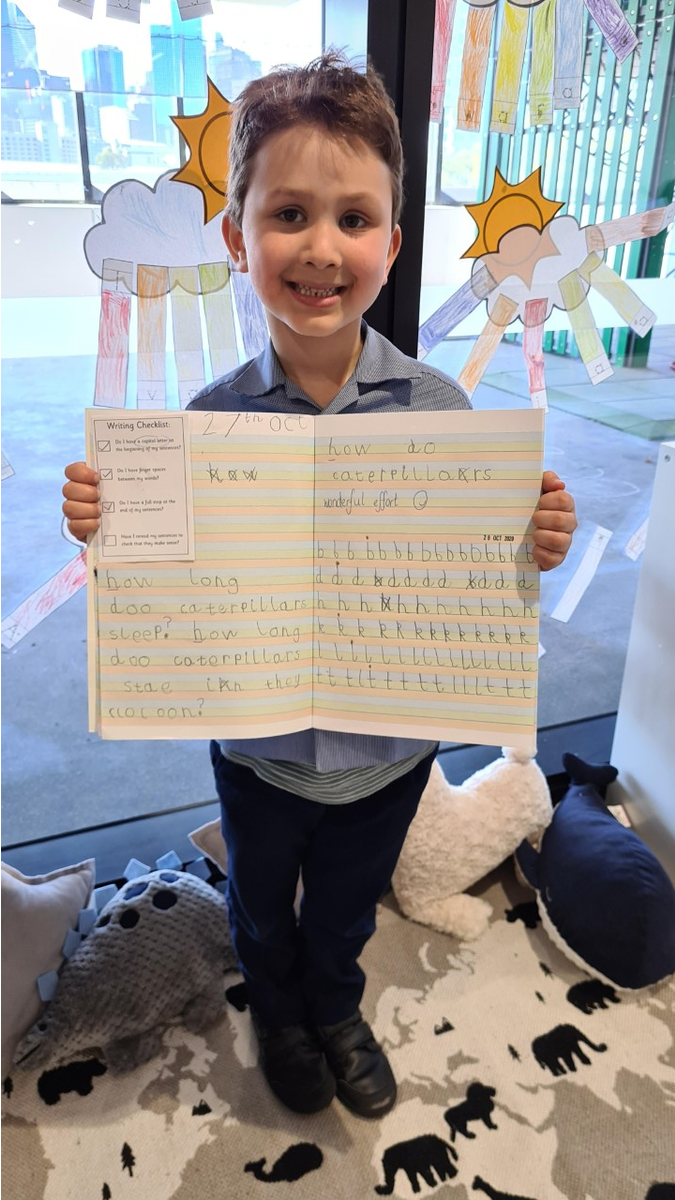 Writing Checklist:
Do I have a capital letter at
the beginning of my sentences?
Do I have finger spaces
between my words?
Do I have a full stop at the
end of my sentences?
Have I reread my sentences to
check that they make sense?
27th Oct
how long
doo caterpillars
sleep? how long
doo caterpillars
stae in they
cocoon?
how do
caterpillars
wonderful effort
28 OCT 2020
b b b b b b b b b b b b b
d d d d d d d d d d
h h h h h h h h h h h
k k k k k k k k k k k k
l l l l l l l l l l l l l
t t t l t t t t t l l l t t t